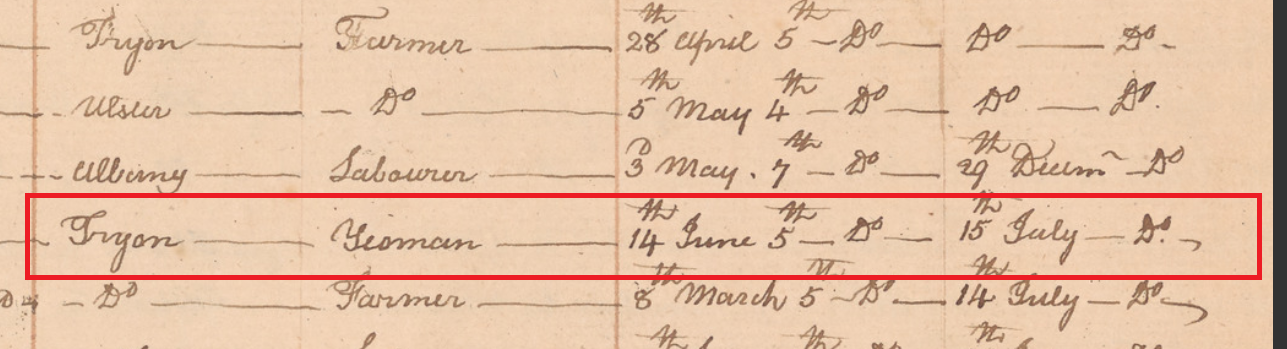 Tryon — Farmer — 28th April 5th — Do — Do — Do -
Ulster — Do — 5th May 4th — Do — Do — Do.
Albany Labourer — 3d May . 7th — Do — 29th Decemr — Do
Tryon — Yeoman — 14th June 5th — Do — 15th July — Do.
— Do — Farmer — 8th March 5th — Do — 14th July — Do